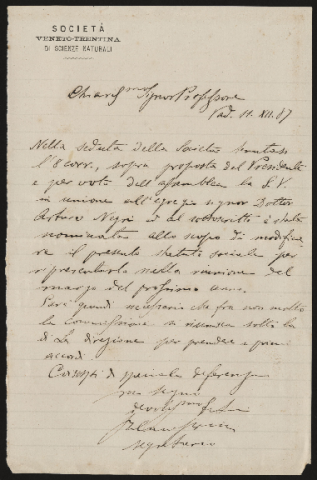 SOCIETÀ
VENETO-TRENTINA
DI SCIENZE NATURALI
Chiarissmo Signor Professore
Pad. 11. XII. 87
Nella seduta della Società tenutasi
l'8 corr., sopra proposta del Presidente
e per voto dell'assemblea la S. V.
in unione all'egregio signor Dottor
Arturo Negri ed al sottoscritto è stata
nominata allo scopo di modifica
re il presente statuto sociale per
ripresentarlo nella riunione del
marzo del prossimo anno.
Sarà quindi necessario che fra non molto
la Commissione si riunisca sotto la
di Lei direzione per prendere i primi
accordi
Coi sensi di speciale deferenza
mi segno
devotissmo
segretario